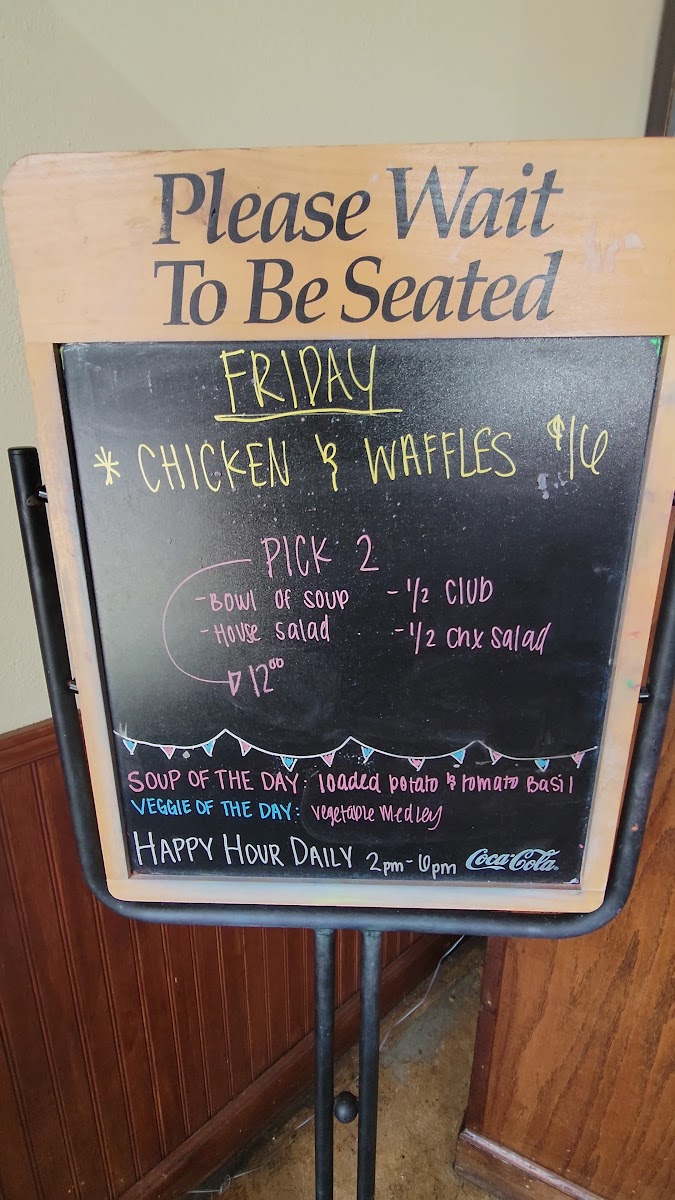 Please Wait
To Be Seated
FRIDAY
* CHICKEN & WAFFLES $16
PICK 2
- BOWL OF SOUP - 1/2 CLUB
- HOUSE SALAD - 1/2 CHX SALAD
12⁰⁰
SOUP OF THE DAY: loaded potato & tomato Basil
VEGGIE OF THE DAY: vegetable Medley
HAPPY HOUR DAILY 2pm-6pm Coca-Cola